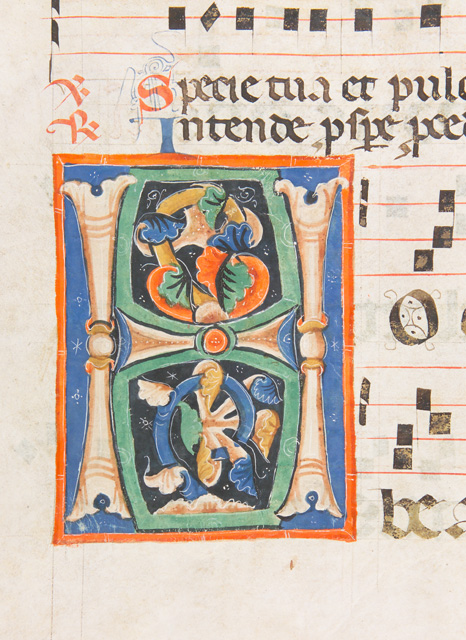 ℣ Specie tua et pulc
℟ Intende ꝓspe ꝓce
H O
bea